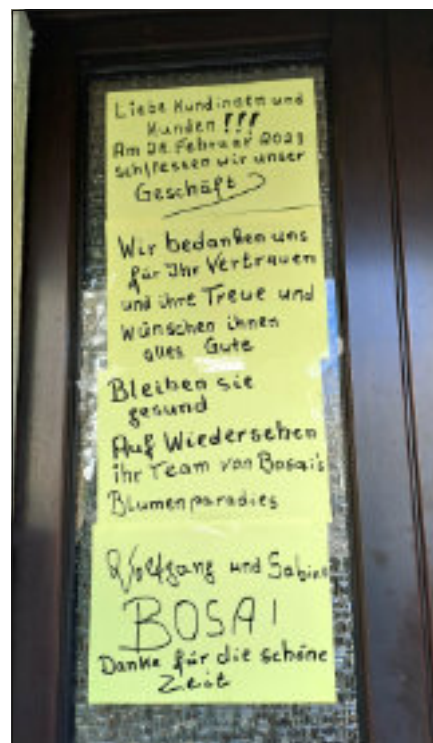 Liebe Kundinnen und
Kunden !!!
Am 28. Februar 2023
schliessen wir unser
Geschäft
Wir bedanken uns
für Ihr Vertrauen
und ihre Treue und
wünschen ihnen
alles Gute
Bleiben sie
gesund
Auf Wiedersehen
ihr Team von Bosai's
Blumenparadies
Wolfgang und Sabine
BOSAI
Danke für die schöne
Zeit